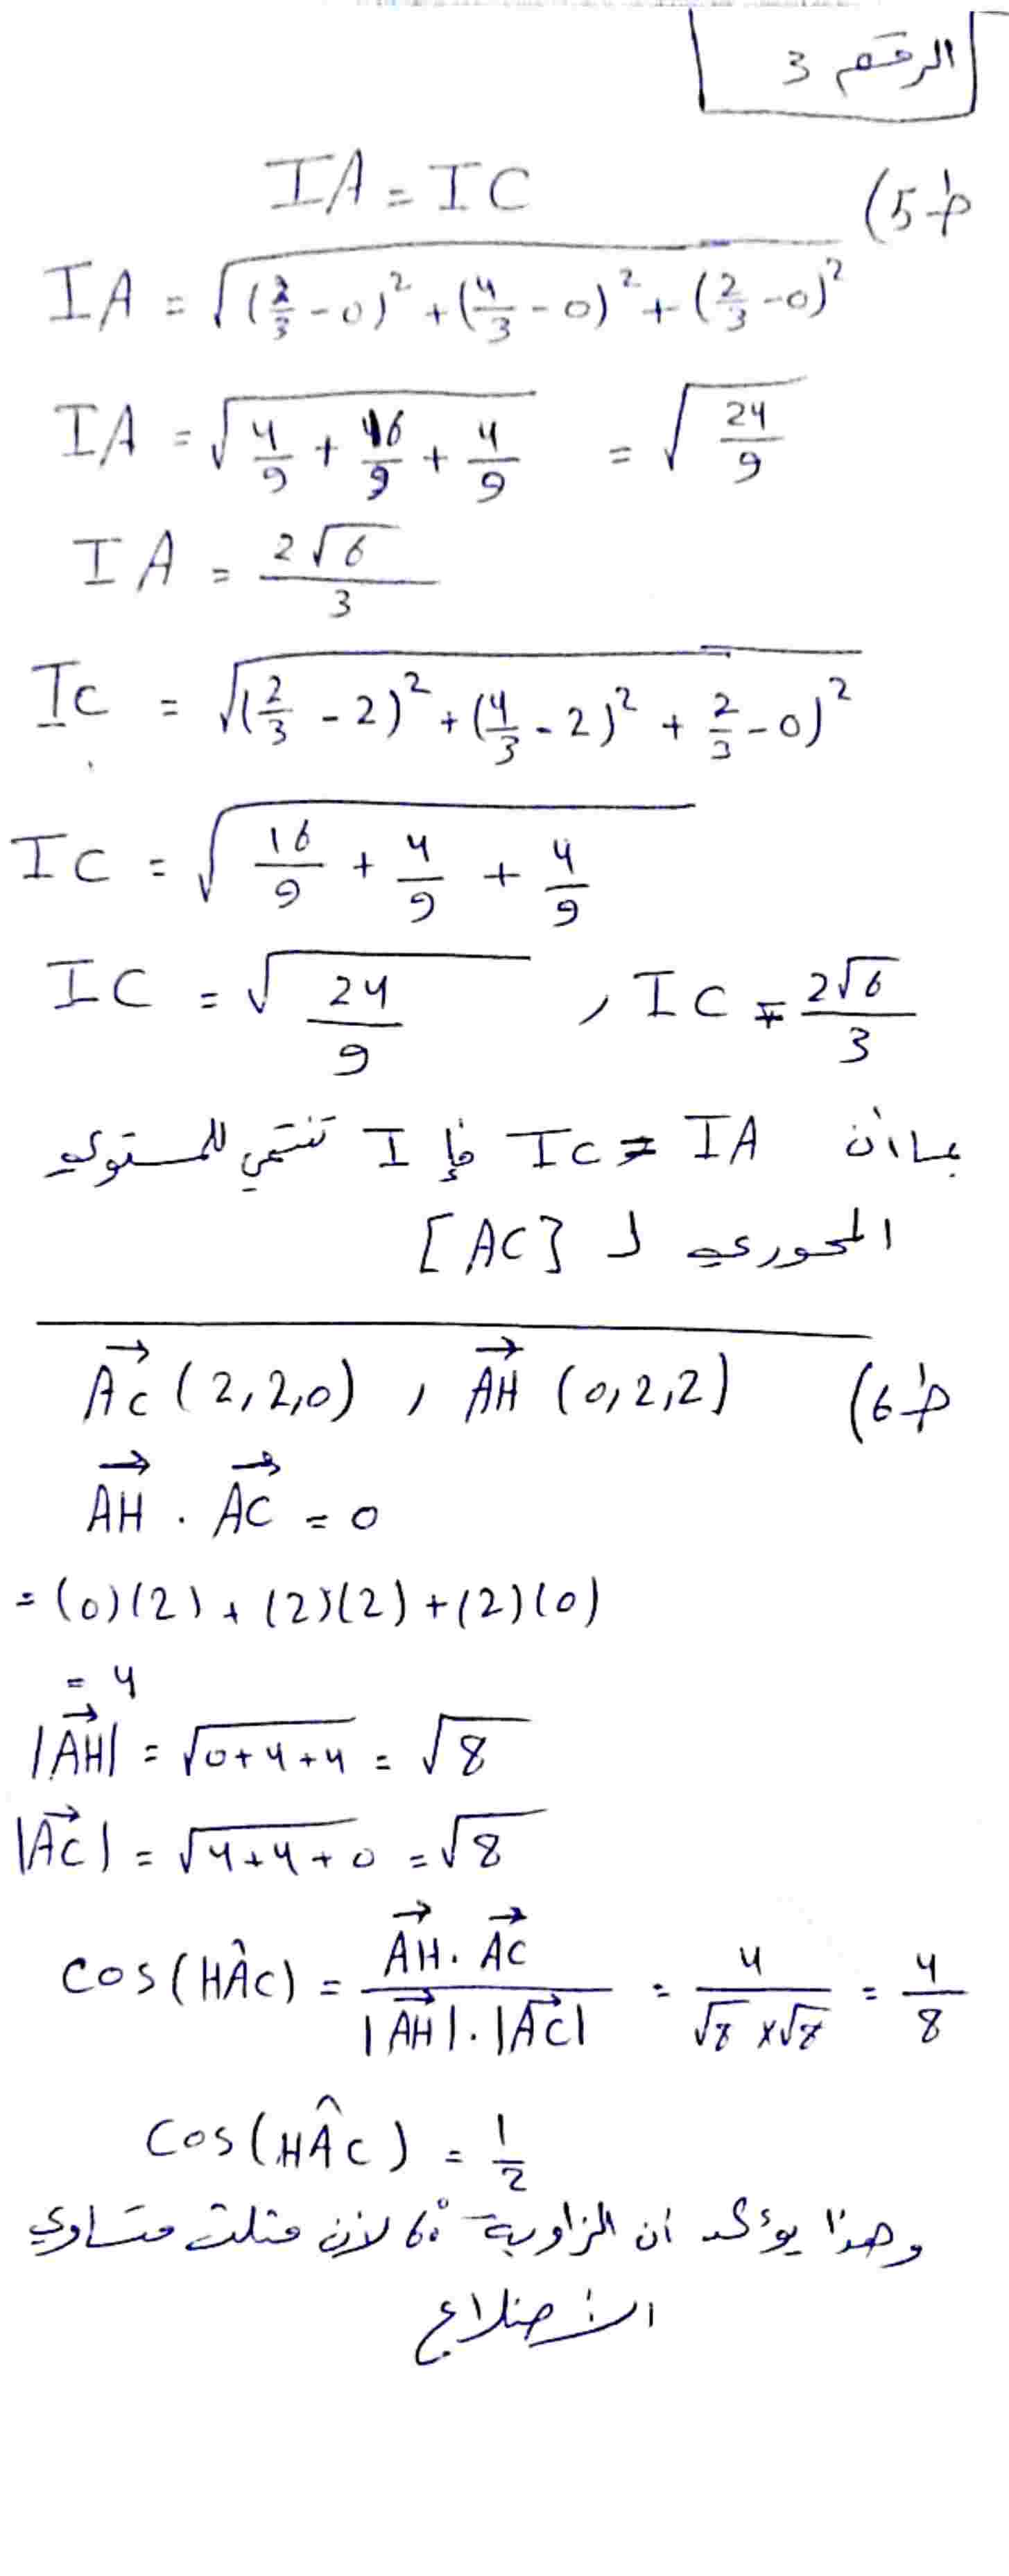 الرقم 3
ط5) IA = IC
IA = √((2/3 - 0)² + (4/3 - 0)² + (2/3 - 0)²)
IA = √(4/9 + 16/9 + 4/9) = √(24/9)
IA = 2√6/3
IC = √((2/3 - 2)² + (4/3 - 2)² + 2/3 - 0)²
IC = √(16/9 + 4/9 + 4/9)
IC = √(24/9) , IC = 2√6/3
بما أن IC = IA فإ I تنتمي للمستوي
المحوري لـ [AC]
ط6) AC→ (2,2,0) , AH→ (0,2,2)
AH→ . AC→ = 0
= (0)(2) + (2)(2) + (2)(0)
= 4
|AH→| = √(0+4+4) = √8
|AC→| = √(4+4+0) = √8
cos(HÂC) = AH→ . AC→ / |AH→| . |AC→| = 4/(√8 × √8) = 4/8
cos(HÂC) = 1/2
وهذا يؤكد أن الزاوية 60° لأن مثلث متساوي
الأضلاع